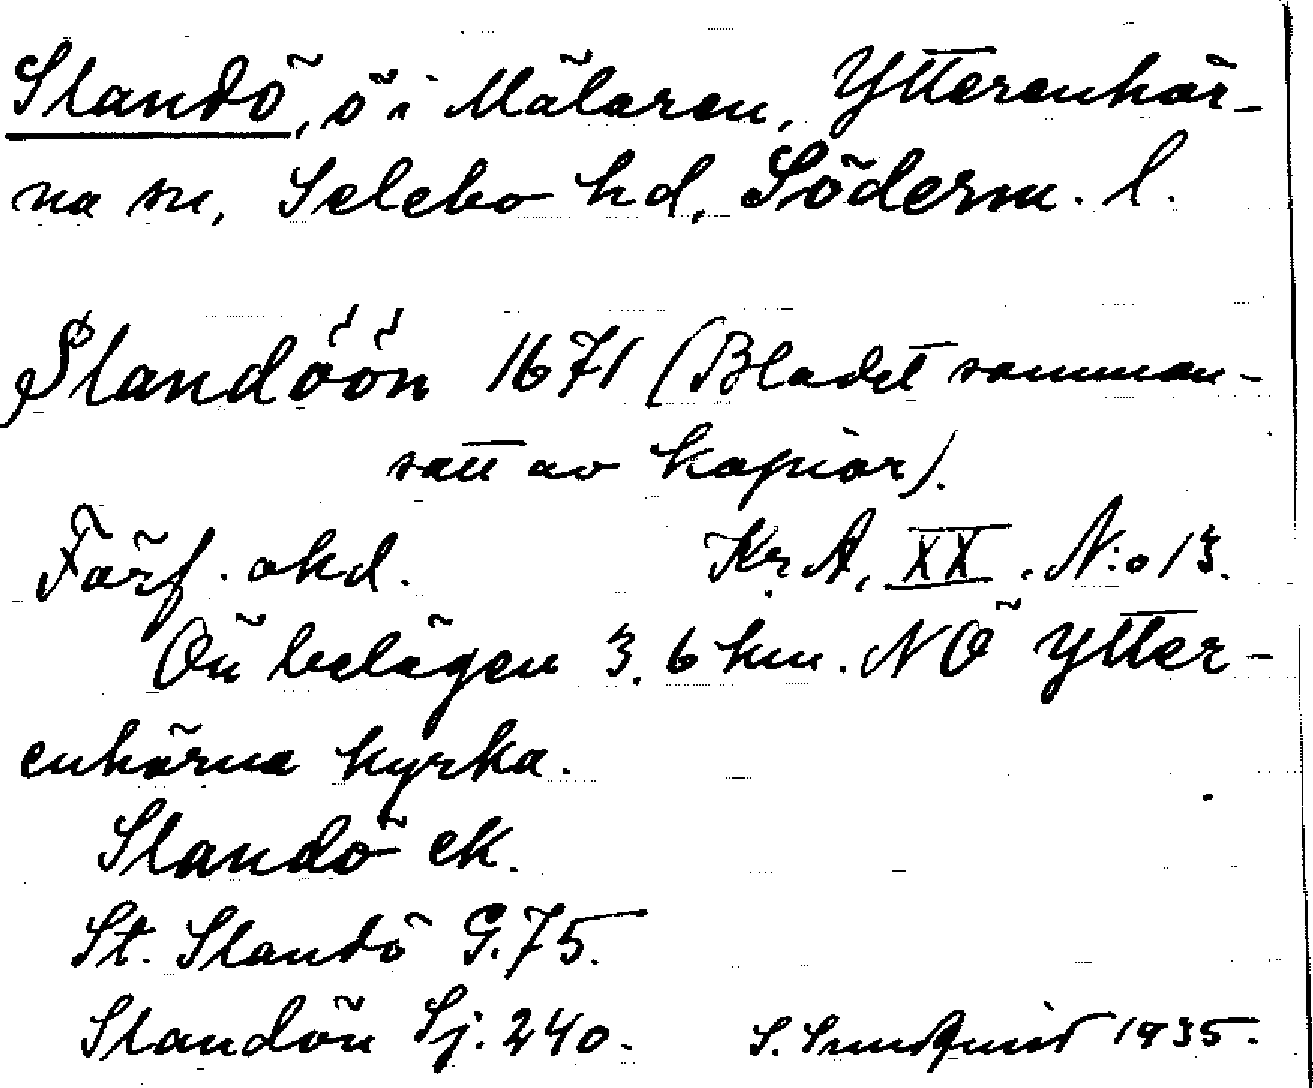 Slandö, ö i Mälaren, Ytterenhör-
na sn, Selebo hd, Söderm. l.
Slandöön 1671 (Bladet samman-
satt av kopior).
Förf. okd. Kr. A, XX. N:o 13.
Ön belägen 3,6 km. NÖ Ytter-
enhörna kyrka.
Slandö ek.
St. Slandö G. 75.
Slandön Sj. 240. S. Sundquist 1935.